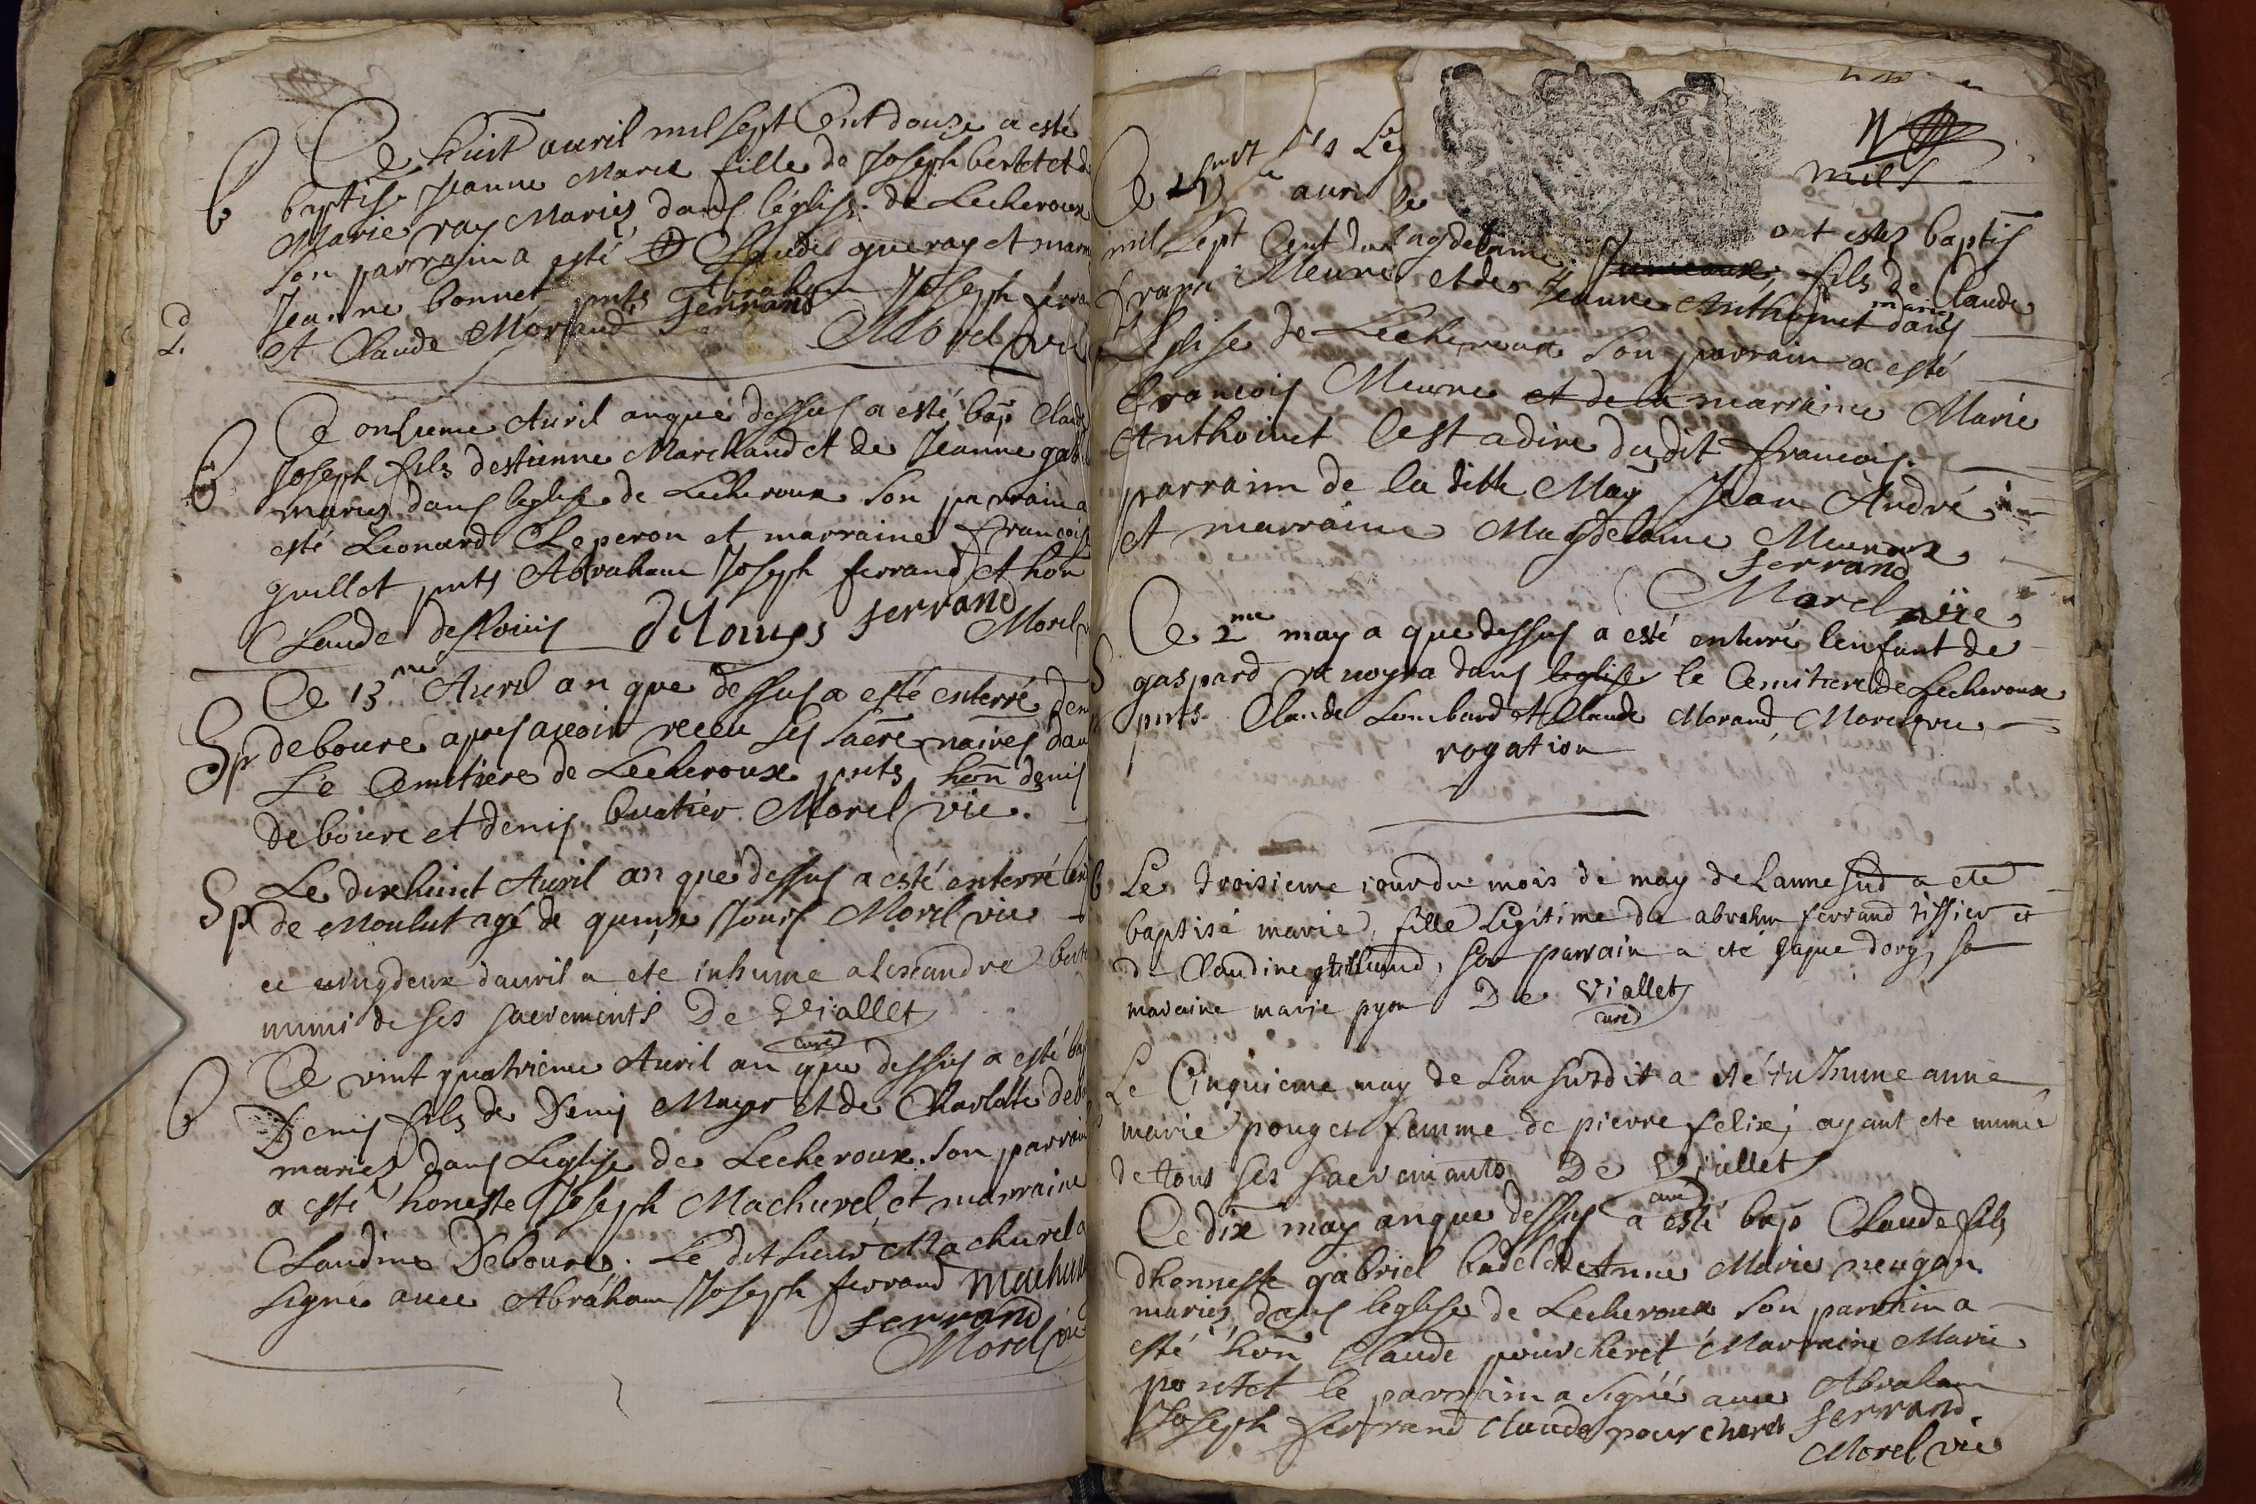 Ce huit auril mil sept Cent douze a esté
b baptisé Jeanne Marie fille de Joseph bertet et d
Marie ray Mariez dans léglise de Lecheroux
son parrain a esté Claude gueray et marr
Jeanne bonnet pnts Abraham Joseph ferra
et Claude Morand ferrand Morel vic
Ce onsieme Auril anque dessus a esté bap Claude
b Joseph fils destienne Marchand et de Jeanne gab
mariez dans leglise de Lecheroux son parrain a
esté Leonard Cleperon et marraine francoise
guillot pnts Abraham Joseph ferrand et hon
Claude deslouis delouys ferrand Morel v
Ce 13me Auril an que dessus a esté enterré Den
Sp deboure apres auoir receu ses sacre naires dans
Le Cemitiere de Lecheroux pnts hon denis
deboure et denis buatier Morel vic.
Sp Le dixhuict Auril an que dessus a esté enterré
de Moulut agé de quinze Jours Morel vic
ce vingdeux dauril a ete inhume alexandre bert
muni de ses sacrements De Viallet
curé
Ce vint quatrieme Auril an que dessus a esté bap
b Denis fils de Denis Mayr et de Charlotte deb
mariez dans Leglise de Lecheroux. son parrain
a esté honeste Joseph Machurel et marraine
Claudine Deboure. Le dit sieur Machurel a
signe auec Abraham Joseph ferrand Machurel
ferrand
Morel vic
mil
Ce auril
mil sept Cent ont estez baptis
Jumeaux, fils de Claude
Meune et de Jeanne Anthoinet mariez dans
Leglise de Lecheroux son parrain a esté
francois Meune et de la marraine Marie
Anthoinet Cest adire dudit francois.
parraim de la ditte Mag Jean André
et marraine Magdelaine Meunoux
ferrand
Morel vic
Ce 2me may a que dessus a esté enterré lenfant de
S gaspard dans leglise le Cemitiere de Lecheroux
pnts Claude Lombard et Claude Morand Morel vic
rogation
b Le troisieme jour du mois de may de Lanne sud a ete
baptisé marie, fille Legitime de abraham ferrand tissier et
de Claudine guilland, son parrain a eté Jaque dorg, sa
maraine marie pyon De Viallet
curé
Le Cinquieme may de Lan susdit a eté inhume anne
marie pouget femme de pierre felix, ayant ete munie
de tous ses sacremants De Viallet
curé
Ce dix may anque dessus a esté bap Claude fils
dhonneste gabriel badel et de Anne Marie neugon
mariez dans leglise de Lecheroux son parrain a
esté hon Claude pourcheret Marraine Marie
pontet le parrain a signé auec Abraham
Joseph ferrand Claude pourcheret ferrand
Morel vic